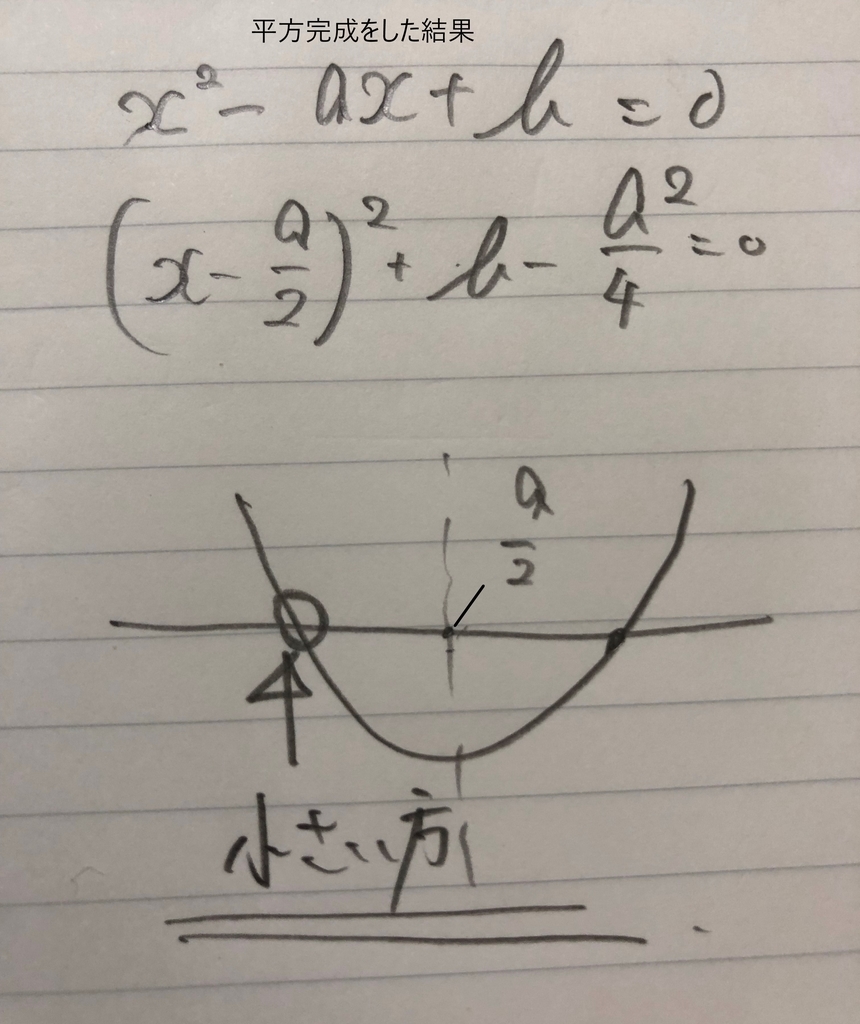 平方完成をした結果
x² - ax + b = 0
(x - a/2)² + b - a²/4 = 0
a/2
小さい方